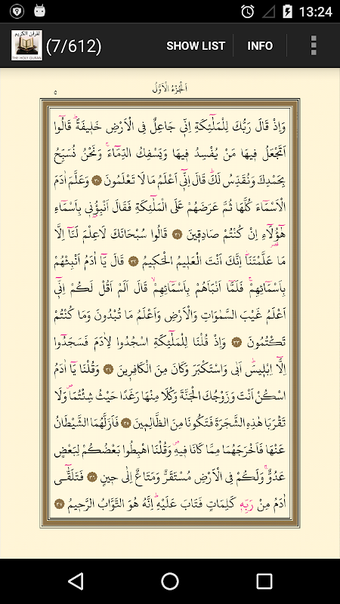 13:24
القرآن الكريم
THE HOLY QURAN
(7/612)
SHOW LIST
INFO
اَلْجُزْءُ الْاَوَّلُ
٥
وَاِذْ قَالَ رَبُّكَ لِلْمَلٰٓئِكَةِ اِنّ۪ي جَاعِلٌ فِي الْاَرْضِ خَل۪يفَةًۜ قَالُٓوا
اَتَجْعَلُ ف۪يهَا مَنْ يُفْسِدُ ف۪يهَا وَيَسْفِكُ الدِّمَٓاءَۚ وَنَحْنُ نُسَبِّحُ
بِحَمْدِكَ وَنُقَدِّسُ لَكَۜ قَالَ اِنّ۪ٓي اَعْلَمُ مَا لَا تَعْلَمُونَ ٣٠ وَعَلَّمَ اٰدَمَ
الْاَسْمَٓاءَ كُلَّهَا ثُمَّ عَرَضَهُمْ عَلَى الْمَلٰٓئِكَةِ فَقَالَ اَنْبِؤُ۫ن۪ي بِاَسْمَٓاءِ
هٰٓؤُ۬لَٓاءِ اِنْ كُنْتُمْ صَادِق۪ينَ ٣١ قَالُوا سُبْحَانَكَ لَا عِلْمَ لَنَٓا اِلَّا
مَا عَلَّمْتَنَاۜ اِنَّكَ اَنْتَ الْعَل۪يمُ الْحَك۪يمُ ٣٢ قَالَ يَٓا اٰدَمُ اَنْبِئْهُمْ
بِاَسْمَٓائِهِمْۚ فَلَمَّٓا اَنْبَاَهُمْ بِاَسْمَٓائِهِمْۙ قَالَ اَلَمْ اَقُلْ لَكُمْ اِنّ۪ٓي
اَعْلَمُ غَيْبَ السَّمٰوَاتِ وَالْاَرْضِۙ وَاَعْلَمُ مَا تُبْدُونَ وَمَا كُنْتُمْ
تَكْتُمُونَ ٣٣ وَاِذْ قُلْنَا لِلْمَلٰٓئِكَةِ اسْجُدُوا لِاٰدَمَ فَسَجَدُٓوا
اِلَّٓا اِبْل۪يسَۜ اَبٰى وَاسْتَكْبَرَ وَكَانَ مِنَ الْكَافِر۪ينَ ٣٤ وَقُلْنَا يَٓا اٰدَمُ
اسْكُنْ اَنْتَ وَزَوْجُكَ الْجَنَّةَ وَكُلَا مِنْهَا رَغَدًا حَيْثُ شِئْتُمَاۖ وَلَا
تَقْرَبَا هٰذِهِ الشَّجَرَةَ فَتَكُونَا مِنَ الظَّالِم۪ينَ ٣٥ فَاَزَلَّهُمَا الشَّيْطَانُ
عَنْهَا فَاَخْرَجَهُمَا مِمَّا كَانَا ف۪يهِۖ وَقُلْنَا اهْبِطُوا بَعْضُكُمْ لِبَعْضٍ
عَدُوٌّۚ وَلَكُمْ فِي الْاَرْضِ مُسْتَقَرٌّ وَمَتَاعٌ اِلٰى ح۪ينٍ ٣٦ فَتَلَقّٰٓى
اٰدَمُ مِنْ رَبِّه۪ كَلِمَاتٍ فَتَابَ عَلَيْهِۜ اِنَّهُ هُوَ التَّوَّابُ الرَّح۪يمُ ٣٧